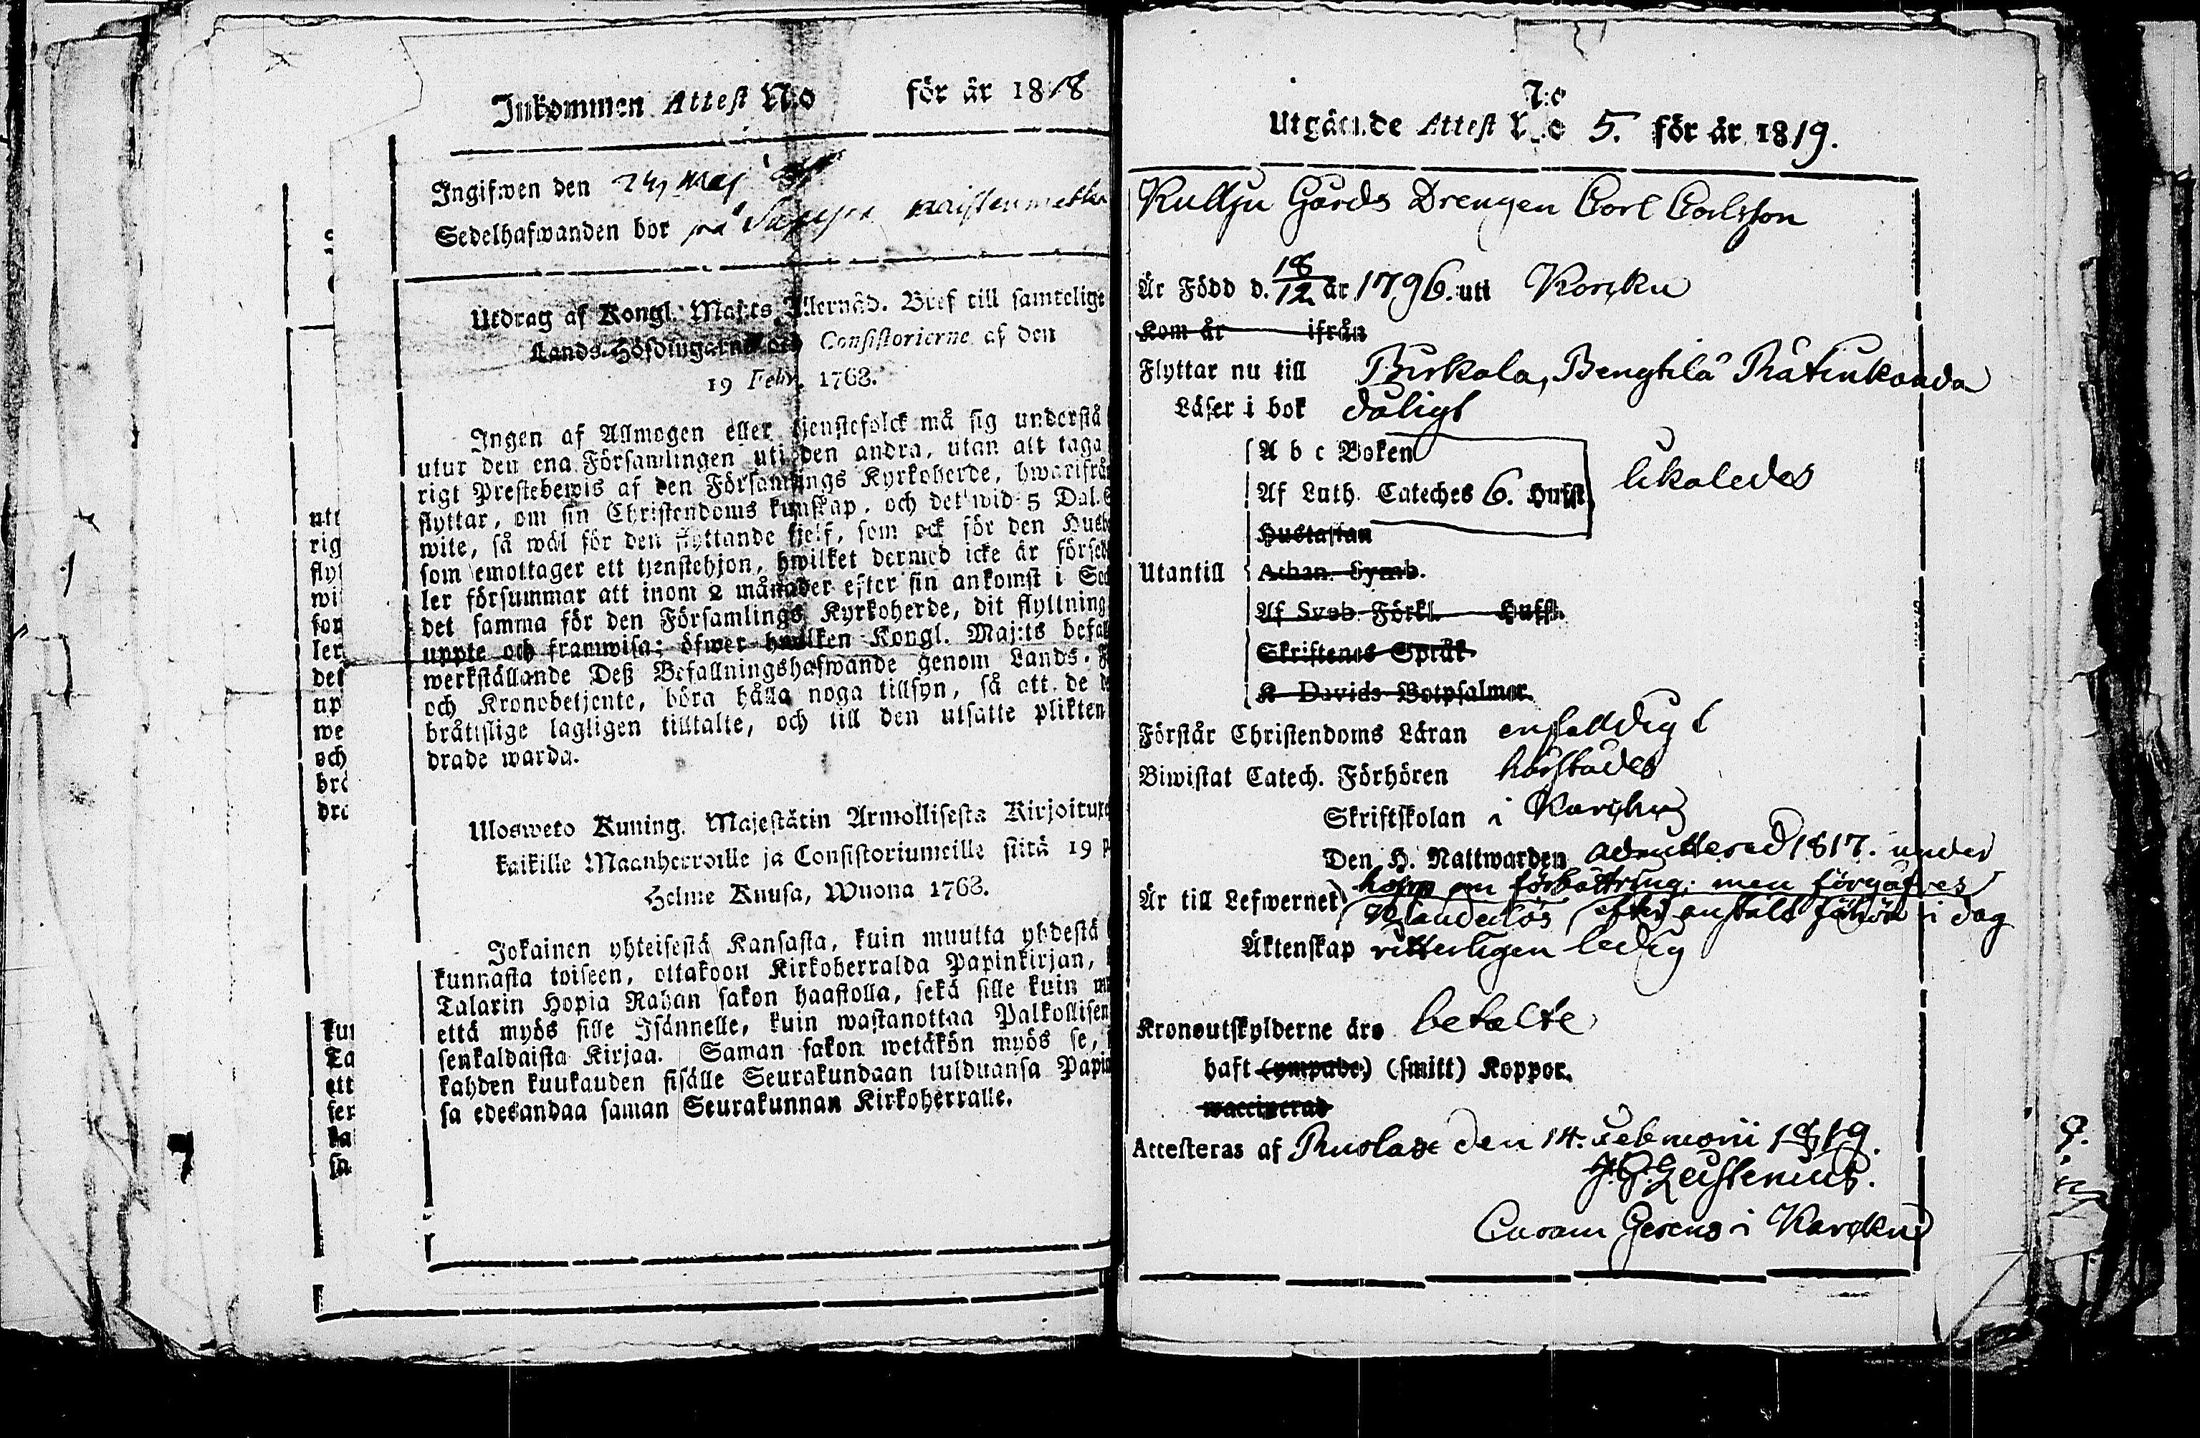 Inkommen Attest N:o för år 1818
Ingifwen den 24 Maj
Sedelhafwanden bor på
Utdrag af Kongl. Maj:ts Allernåd. Bref till samtelige
Lands-Höfdingarne och Consistorierne af den
19 Febr. 1763.
Ingen af Allmogen eller tjenstefolck må sig understå
utur den ena Församlingen uti den andra, utan att taga
rigt Prestebewis af den Församlings Kyrkoherde, hwarifrå
flyttar, om sin Christendoms kunskap, och det wid 5 Dal. S
wite, så wäl för den flyttande sjelf, som ock för den Husb
som emottager ett tjenstehjon, hwilket dermed icke är försedt
ler försummar att inom 2 månader efter sin ankomst i Soc
det samma för den Församlings Kyrkoherde, dit flyttning
uppte och framwisa; öfwer hwilken Kongl. Maj:ts befal
werkställande Deß Befallningshafwande genom Lands-F
och Kronobetjente, böra hålla noga tillsyn, så att de
bråttslige lagligen tilltalte, och till den utsatte plikten
drade warda.
Ulosweto Kuning. Majestätin Armollisesta Kirjoituxe
kaikille Maanherroille ja Consistoriumeille siitä 19 p
Helme Kuusa, Wuona 1763.
Jokainen yhteisestä Kansasta, kuin muutta yhdestä
kunnasta toiseen, ottakoon Kirkoherralda Papinkirjan,
Talarin Hopia Rahan sakon haastolla, sekä sille kuin mu
että myös sille Isännelle, kuin wastanottaa Palkollisen
senkaldaista Kirjaa. Saman sakon wetäkön myös se,
kahden kuukauden sisälle Seurakundaan tulduansa Papin
sa edesandaa saman Seurakunnan Kirkoherralle.
utt
rig
flyt
wi
som
ler
det
up
we
och
brå
dra
kun
Ta
ett
sen
ka
sa
N:o
Utgående Attest N:o 5. för år 1819.
Kullju Gårds Drengen Carl Carlsson
Är Född d. 18/12 år 1796. uti Karcku
Kom år ifrån
Flyttar nu till Birkala, Bengtilä Rätinkaanda
Läser i bok dåligt
A b c Boken
Af Luth. Cateches 6. Hufst. likaledes
Hustaflan
Utantill Athan. Symb.
Af Sveb. Förkl. Hufst.
Skriftenes Språk
K. Davids Botpsalmer.
Förstår Christendoms Läran enfalldigt
Biwistat Catech. Förhören härstädes
Skriftskolan i Karcku
Den H. Nattwarden admitterad 1817. under
hopp om förbättring; men förgäfves
Är till Lefwernet klanderlös efter anstält förhör i dag
Äktenskap vitterligen ledig
Kronoutskylderne äro betalte
haft (ympade) (smitt) Koppor.
waccinerad
Attesteras af Ruolax den 14. Februarii 1819.
J. G. Leistenius.
Curam Gerens i Karcku
9.